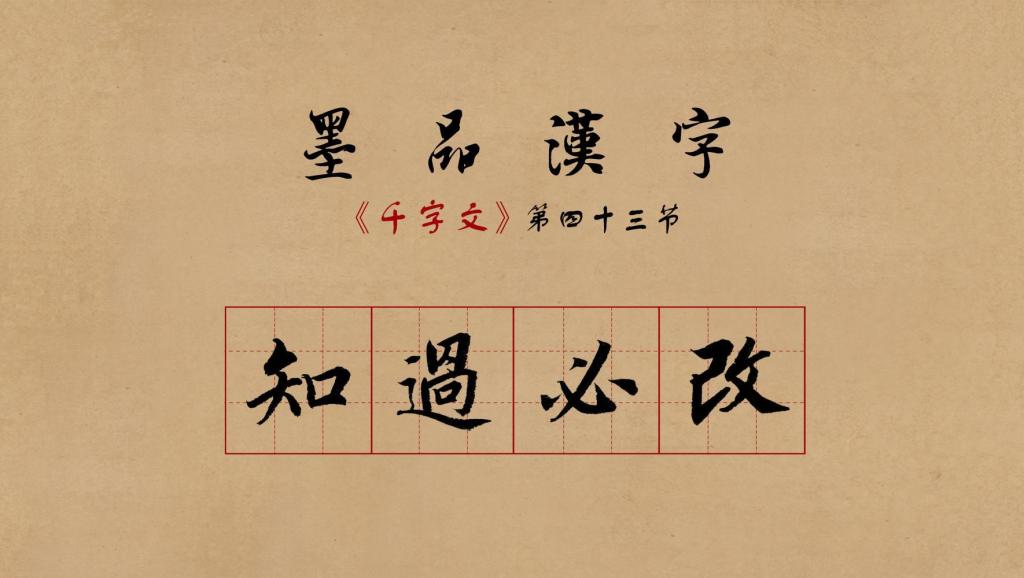 墨品漢字
《千字文》第四十三节
知過必改